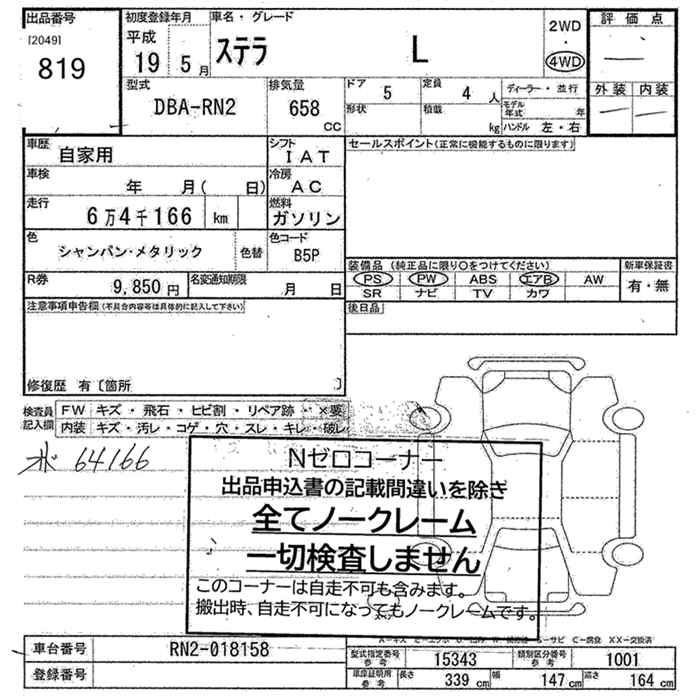 出品番号
[2049]
819
初度登録年月
平成
19 5月
車名・グレード
ステラ L
2WD
・
4WD
評価点
―
外装 内装
― ―
型式
DBA-RN2
排気量
658
CC
ドア 5
形状
定員 4 人
積載 kg
ディーラー・並行
モデル年式 年
ハンドル 左・右
車歴
自家用
シフト
IAT
セールスポイント(正常に機能するものに限ります)
車検
年 月( 日)
冷房
AC
走行
6万4千166 km
燃料
ガソリン
色
シャンパン・メタリック
色替
色コード
B5P
装備品(純正品に限り○をつけてください)
新車保証書
PS PW ABS エアB AW
SR ナビ TV カワ
有・無
R券
9,850円
名変通知期限
月 日
後日品
注意事項申告欄(不具合内容等は具体的に記入して下さい)
修復歴 有〔箇所 〕
検査員記入欄
FW キズ・飛石・ヒビ割・リペア跡・×要
内装 キズ・汚レ・コゲ・穴・スレ・キレ・破レ
64166
Nゼロコーナー
出品申込書の記載間違いを除き
全てノークレーム
一切検査しません
このコーナーは自走不可も含みます。
搬出時、自走不可になってもノークレームです。
車台番号
RN2-018158
登録番号
型式指定番号
参考
15343
類別区分番号
参考
1001
車庫証明用
参考
長さ 339 cm 幅 147 cm 高さ 164 cm